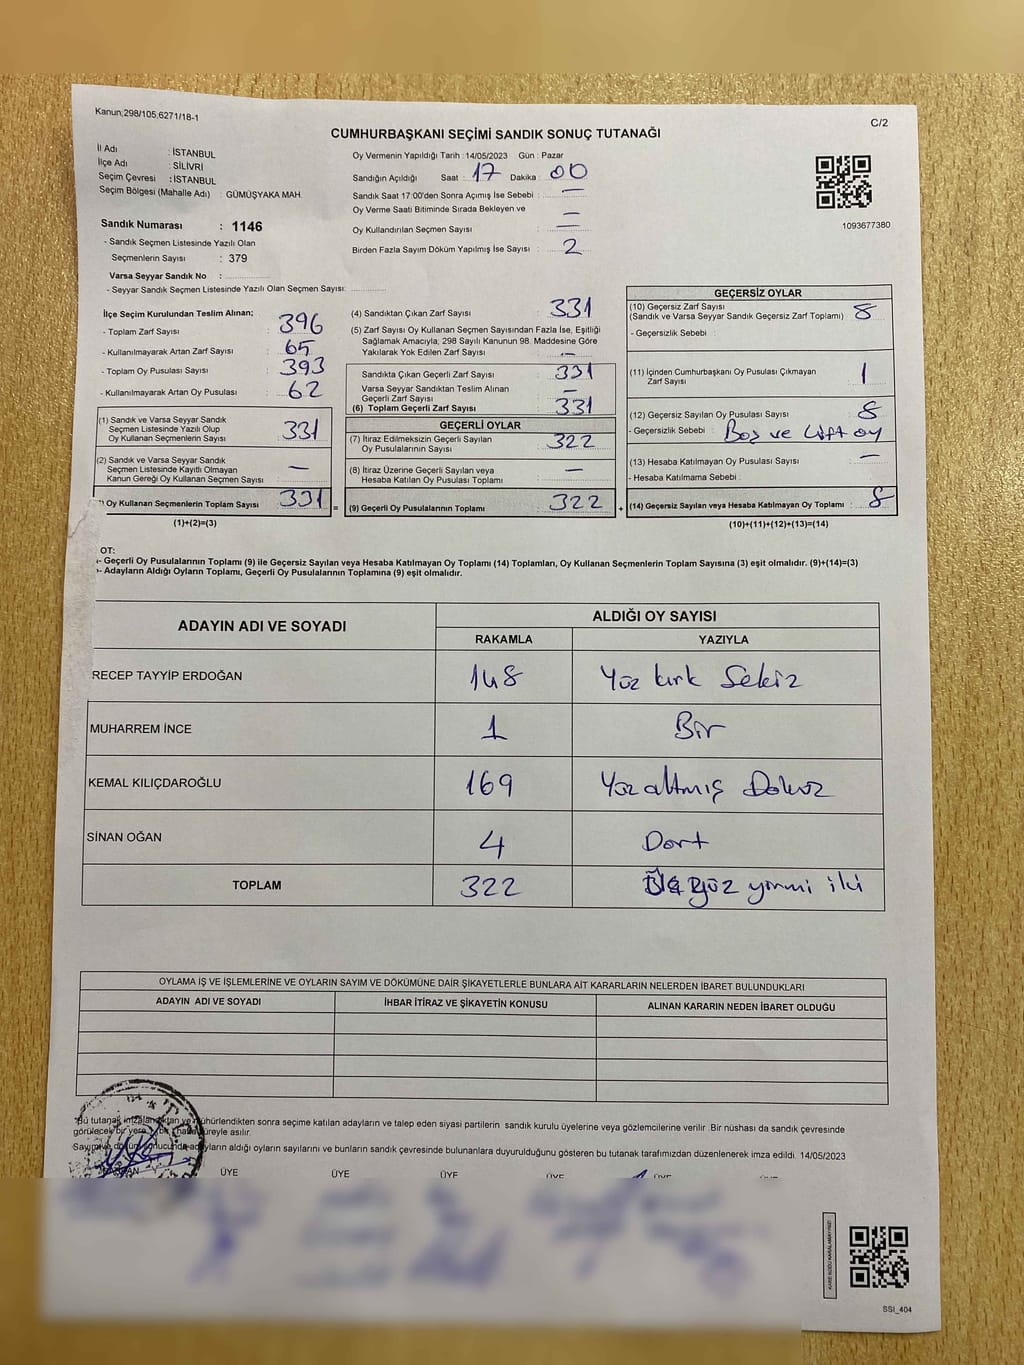 Kanun;298/105,6271/18-1
C/2
CUMHURBAŞKANI SEÇİMİ SANDIK SONUÇ TUTANAĞI
İl Adı : İSTANBUL
İlçe Adı : SİLİVRİ
Seçim Çevresi : İSTANBUL
Seçim Bölgesi (Mahalle Adı) : GÜMÜŞYAKA MAH.
Oy Vermenin Yapıldığı Tarih : 14/05/2023 Gün : Pazar
Sandığın Açıldığı Saat : 17 Dakika : 00
Sandık Saat 17:00'den Sonra Açımış İse Sebebi : —
Oy Verme Saati Bitiminde Sırada Bekleyen ve
Oy Kullandırılan Seçmen Sayısı : —
Birden Fazla Sayım Döküm Yapılmış İse Sayısı : 2
1093677380
Sandık Numarası : 1146
- Sandık Seçmen Listesinde Yazılı Olan
Seçmenlerin Sayısı : 379
Varsa Seyyar Sandık No :
- Seyyar Sandık Seçmen Listesinde Yazılı Olan Seçmen Sayısı:
İlçe Seçim Kurulundan Teslim Alınan;
- Toplam Zarf Sayısı : 396
- Kullanılmayarak Artan Zarf Sayısı : 65
- Toplam Oy Pusulası Sayısı : 393
- Kullanılmayarak Artan Oy Pusulası : 62
(1) Sandık ve Varsa Seyyar Sandık
Seçmen Listesinde Yazılı Olup
Oy Kullanan Seçmenlerin Sayısı : 331
(2) Sandık ve Varsa Seyyar Sandık
Seçmen Listesinde Kayıtlı Olmayan
Kanun Gereği Oy Kullanan Seçmen Sayısı : —
) Oy Kullanan Seçmenlerin Toplam Sayısı : 331
(1)+(2)=(3)
(4) Sandıktan Çıkan Zarf Sayısı : 331
(5) Zarf Sayısı Oy Kullanan Seçmen Sayısından Fazla İse, Eşitliği
Sağlamak Amacıyla, 298 Sayılı Kanunun 98. Maddesine Göre
Yakılarak Yok Edilen Zarf Sayısı : —
Sandıkta Çıkan Geçerli Zarf Sayısı : 331
Varsa Seyyar Sandıktan Teslim Alınan
Geçerli Zarf Sayısı : —
(6) Toplam Geçerli Zarf Sayısı : 331
GEÇERLİ OYLAR
(7) İtiraz Edilmeksizin Geçerli Sayılan
Oy Pusulalarının Sayısı : 322
(8) İtiraz Üzerine Geçerli Sayılan veya
Hesaba Katılan Oy Pusulası Toplamı : —
= (9) Geçerli Oy Pusulalarının Toplamı : 322
GEÇERSİZ OYLAR
(10) Geçersiz Zarf Sayısı
(Sandık ve Varsa Seyyar Sandık Geçersiz Zarf Toplamı) : 8
- Geçersizlik Sebebi :
(11) İçinden Cumhurbaşkanı Oy Pusulası Çıkmayan
Zarf Sayısı : 1
(12) Geçersiz Sayılan Oy Pusulası Sayısı : 8
- Geçersizlik Sebebi : Boş ve Çift oy
(13) Hesaba Katılmayan Oy Pusulası Sayısı : —
- Hesaba Katılmama Sebebi :
+ (14) Geçersiz Sayılan veya Hesaba Katılmayan Oy Toplamı : 8
(10)+(11)+(12)+(13)=(14)
OT:
- Geçerli Oy Pusulalarının Toplamı (9) ile Geçersiz Sayılan veya Hesaba Katılmayan Oy Toplamı (14) Toplamları, Oy Kullanan Seçmenlerin Toplam Sayısına (3) eşit olmalıdır. (9)+(14)=(3)
- Adayların Aldığı Oyların Toplamı, Geçerli Oy Pusulalarının Toplamına (9) eşit olmalıdır.
ADAYIN ADI VE SOYADI
ALDIĞI OY SAYISI
RAKAMLA YAZIYLA
RECEP TAYYİP ERDOĞAN 148 Yüz kırk Sekiz
MUHARREM İNCE 1 Bir
KEMAL KILIÇDAROĞLU 169 Yüz altmış Dokuz
SİNAN OĞAN 4 Dört
TOPLAM 322 Üç yüz yirmi iki
OYLAMA İŞ VE İŞLEMLERİNE VE OYLARIN SAYIM VE DÖKÜMÜNE DAİR ŞİKAYETLERLE BUNLARA AİT KARARLARIN NELERDEN İBARET BULUNDUKLARI
ADAYIN ADI VE SOYADI İHBAR İTİRAZ VE ŞİKAYETİN KONUSU ALINAN KARARIN NEDEN İBARET OLDUĞU
Bu tutanak imzalandıktan ve mühürlendikten sonra seçime katılan adayların ve talep eden siyasi partilerin sandık kurulu üyelerine veya gözlemcilerine verilir .Bir nüshası da sandık çevresinde
görülecek bir yere bir hafta süreyle asılır.
Sayım ve döküm sonucunda adayların aldığı oyların sayılarını ve bunların sandık çevresinde bulunanlara duyurulduğunu gösteren bu tutanak tarafımızdan düzenlenerek imza edildi. 14/05/2023
ÜYE ÜYE ÜYE ÜYE ÜYE
KARE KODU KARALAMAYINIZ!
SSI_404